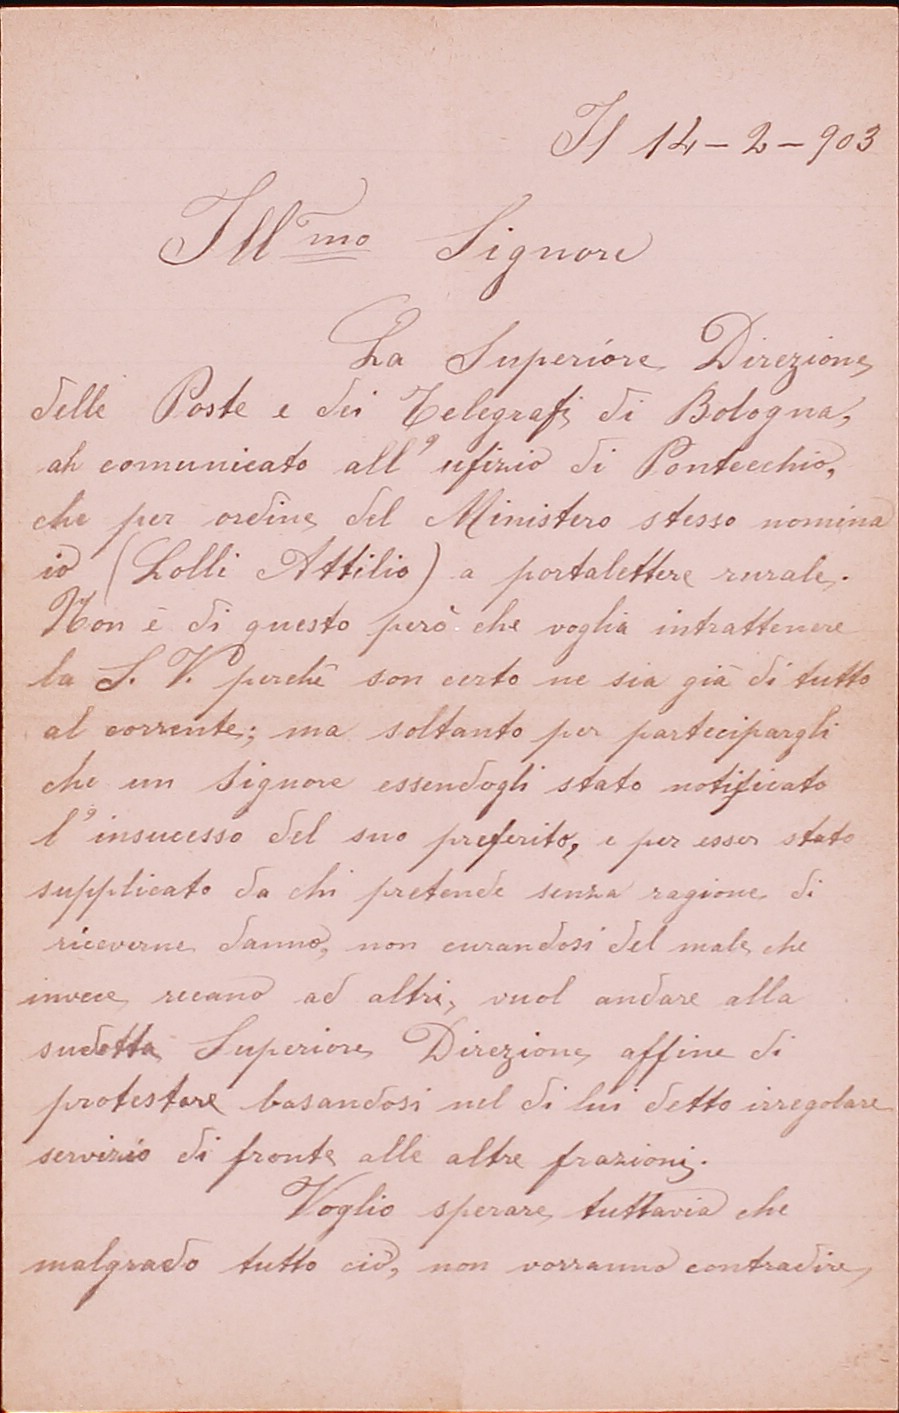 Il 14-2-903
Ill.mo Signore
La Superiore Direzione
delle Poste e dei Telegrafi di Bologna,
ah comunicato all'ufizio di Pontecchio,
che per ordine del Ministero stesso nomina
io (Lolli Attilio) a portalettere rurale.
Non è di questo però che voglia intrattenere
la S. V. perchè son certo ne sia già di tutto
al corrente; ma soltanto per partecipargli
che un Signore essendogli stato notificato
l'insucesso del suo preferito, e per esser stato
supplicato da chi pretende senza ragione di
riceverne danno, non curandosi del male che
invece recano ad altri, vuol andare alla
sudetta Superiore Direzione affine di
protestare basandosi nel di lui detto irregolare
servizio di fronte alle altre frazioni.
Voglio sperare tuttavia che
malgrado tutto ciò, non vorranno contradire